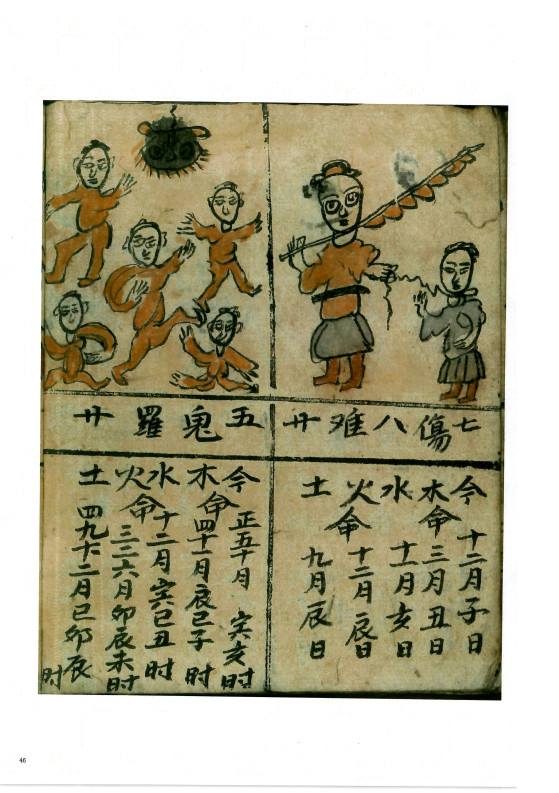 七傷八难廾
今 十二月子日
木命 三月丑日
水 十一月亥日
火命 十二月辰日
土 九月辰日
五鬼羅廾
今 正五十月 寅亥时
木命 四十一月辰巳子时
水 十二月寅巳丑时
火命 三二六月卯辰未时
土 四九十二月巳卯辰时
46